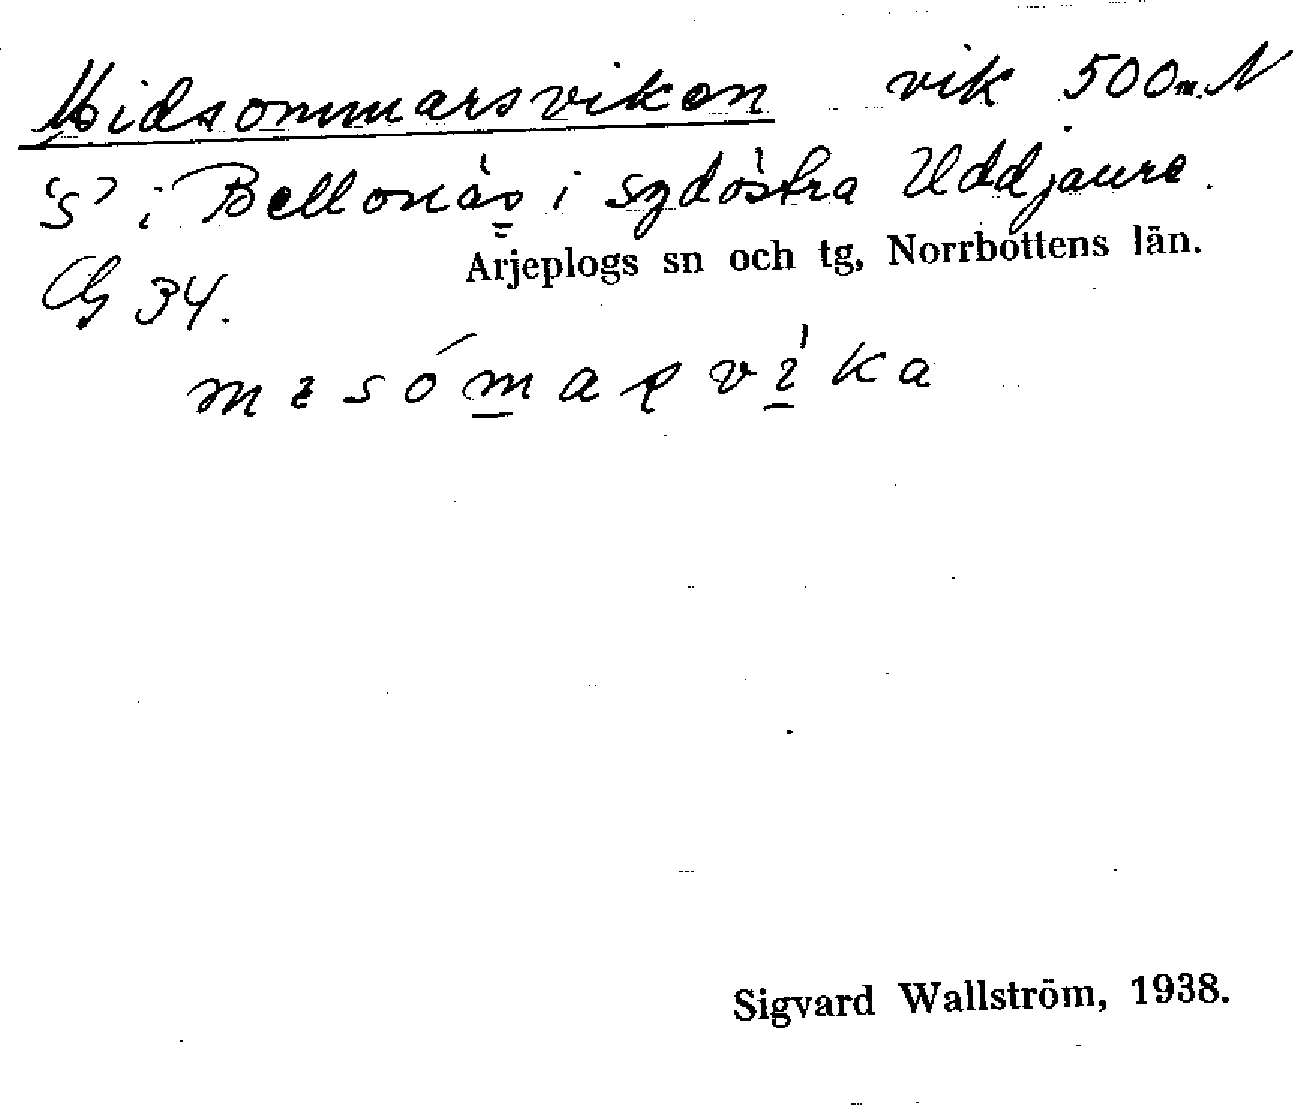 Midsommarsviken vik 500 m. N
"S" i Bellonäs i sydöstra Uddjaure.
Arjeplogs sn och tg, Norrbottens län.
34.
Sigvard Wallström, 1938.